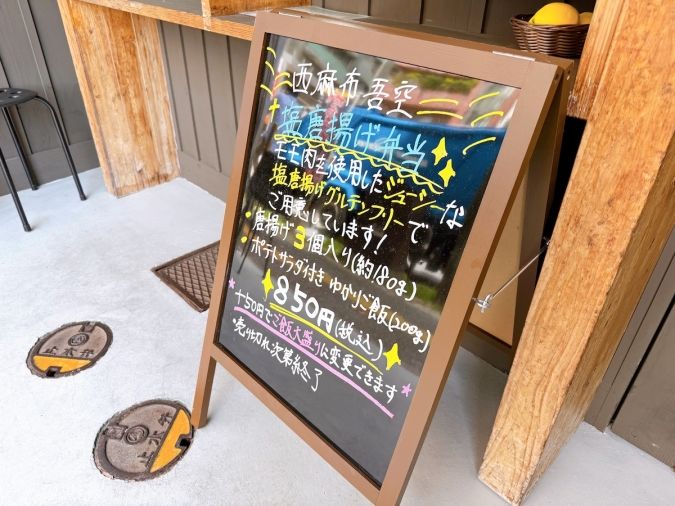 西麻布 吾空
塩唐揚げ弁当
モモ肉を使用したジューシーな
塩唐揚げグルテンフリーで
ご用意しています!
・唐揚げ3個入り(約180g)
・ポテトサラダ付き ゆかりご飯(200g)
850円(税込)
+50円でご飯大盛りに変更できます
・売り切れ次第終了
止水弁
止水弁